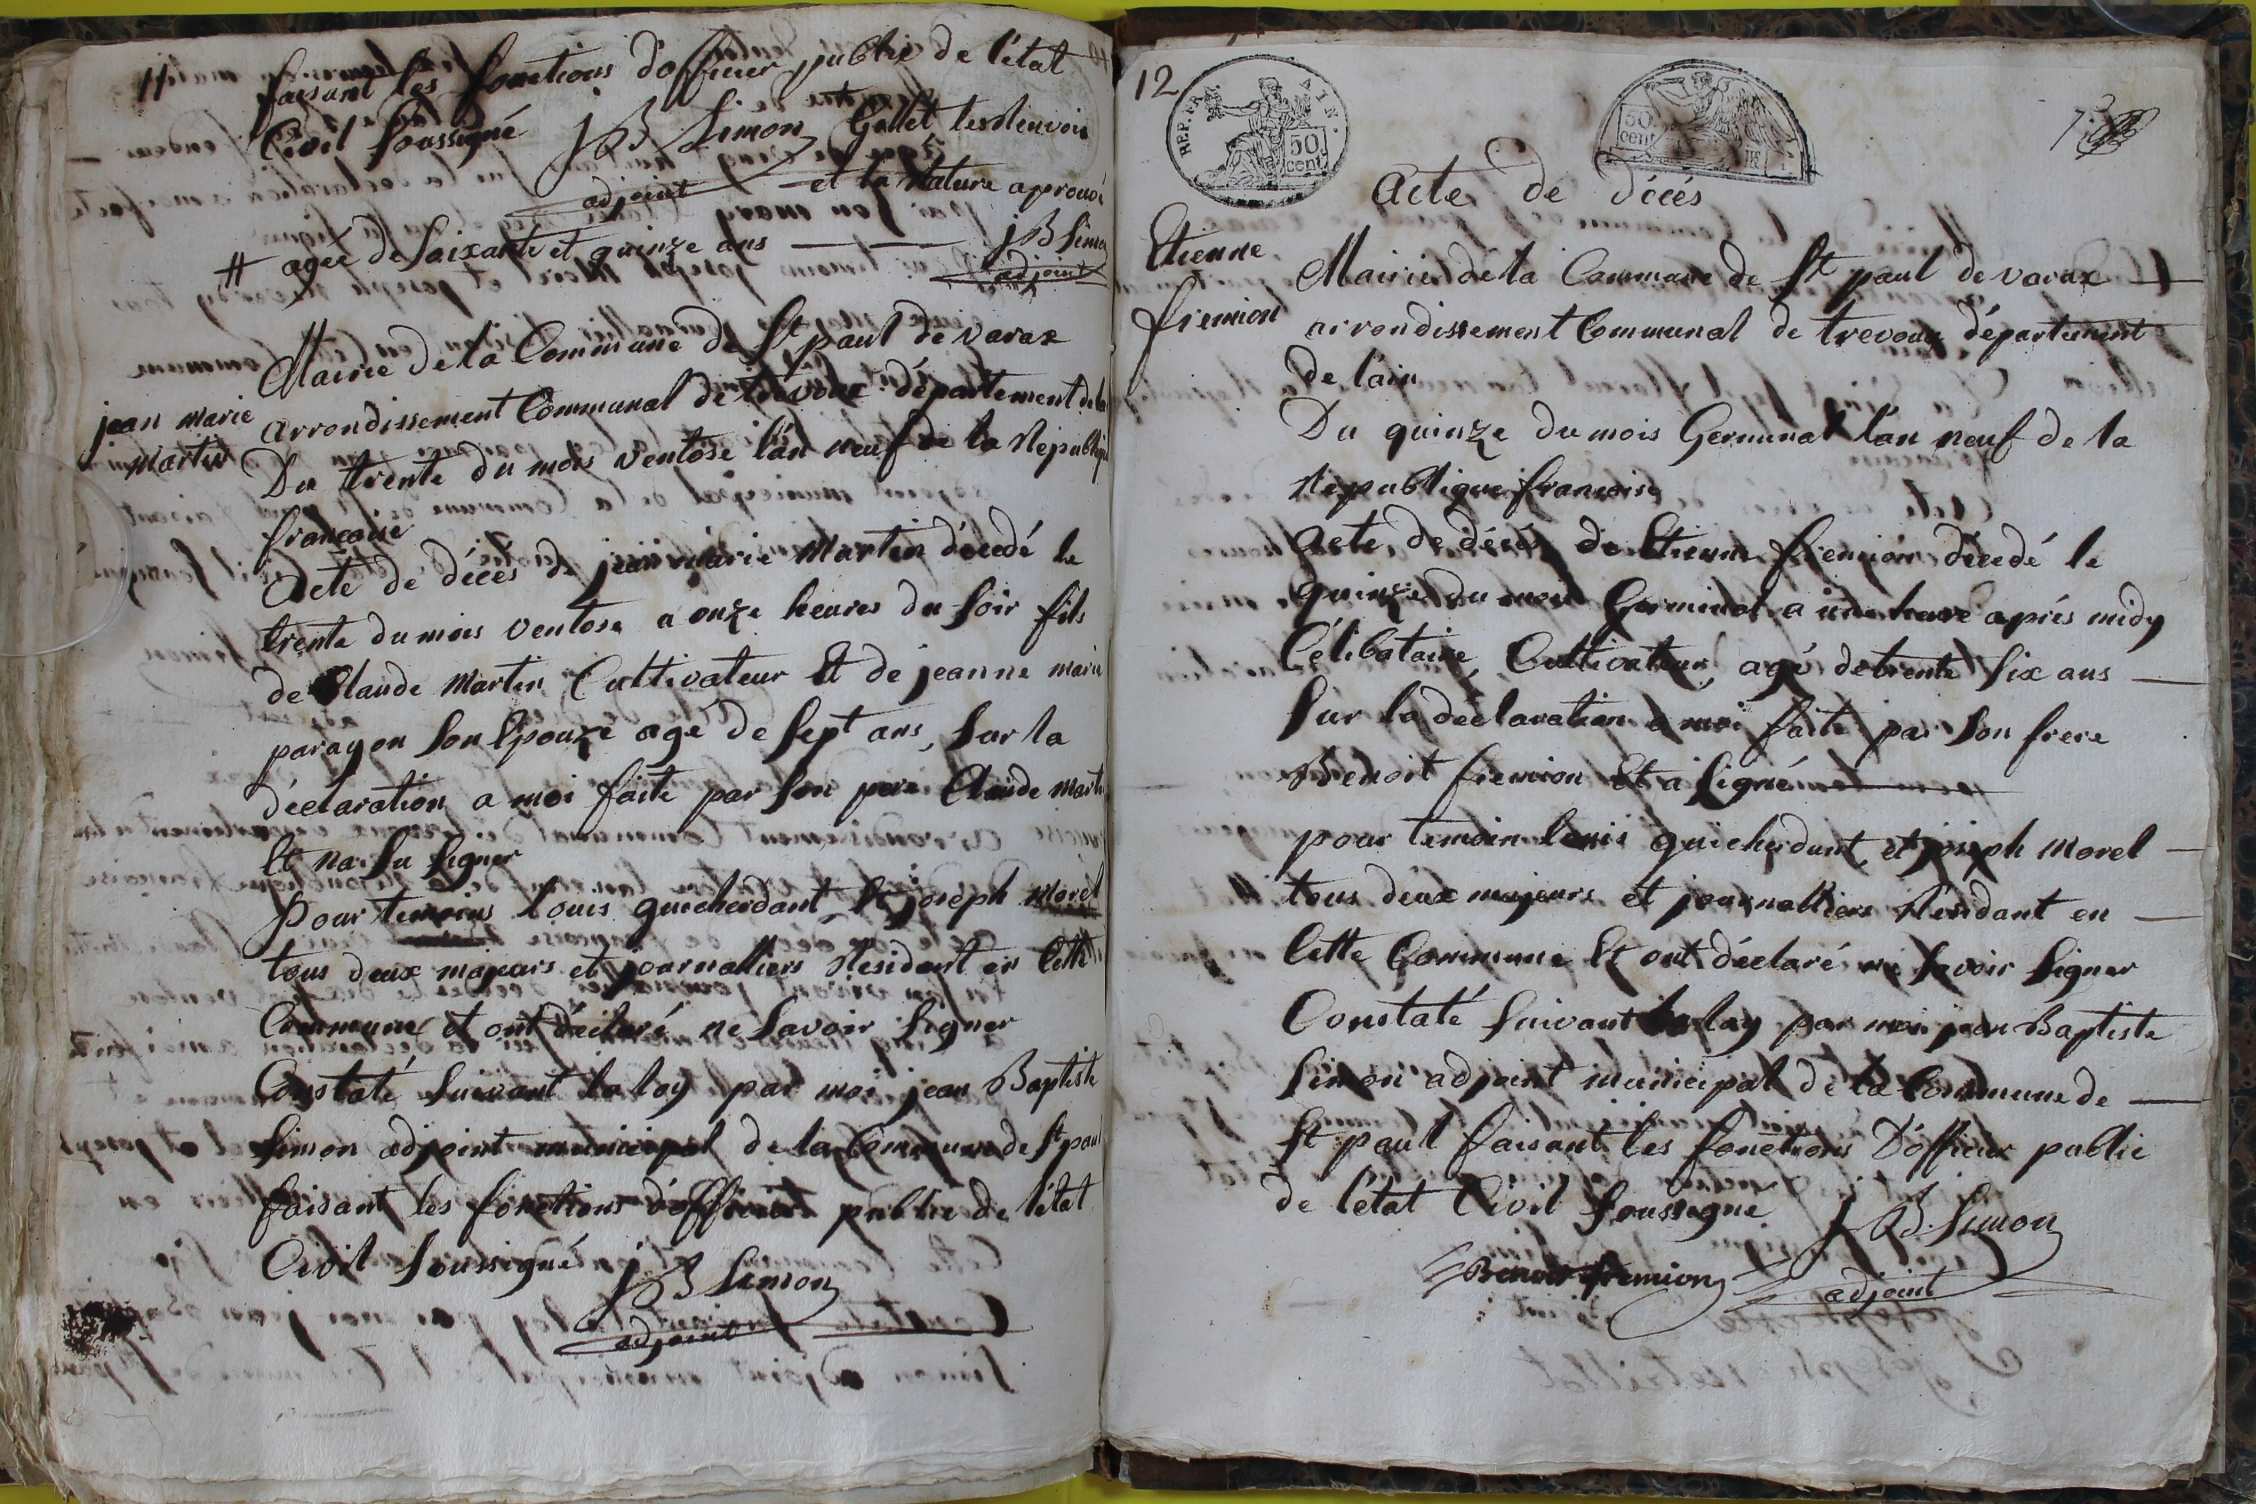 11
faisant les fonctions d'officier public de l'état
Civil soussigné JB Simon Gallet
adjoint et la Rature aprouvé
# agée de soixante et quinze ans JB Simon
adjoint
Mairie de la Commune de St paul de varax
arrondissement Communal de trevoux département de la
jean marie
martin
Du trente du mois ventose l'an neuf de la Republique
francoise
Acte de décés de jean marie martin décedé le
trente du mois ventose a onze heures du soir fils
de Claude martin Cultivateur Et de jeanne marie
paragon son Epouze agé de sept ans, sur la
déclaration a moi faite par son pere Claude marti
Et na su signer
pour temoins louis guicherdant Et joseph morel
tous deux majeurs et journalliers Residant en Cette
Commune et ont déclaré ne savoir signer
Constaté suivant la loy par moi jean Baptiste
simon adjoint municipal de la Commune de St paul
faisant les fonctions d'officier public de l'état
Civil soussigné JB Simon
adjoint
12
REP. FRA. AIN.
50 cent.
50 cent
Acte de décés
Etienne
fremion
Mairie de la Commune de St paul de varax
arrondissement Communal de trevoux département
de l'ain
Du quinze du mois Germinal l'an neuf de la
Republique francoise
acte de décés de Etienne fremion décedé le
quinze du mois Germinal a une heure aprés midy
Célibataire, Cultivateur, agé de trente six ans
sur la déclaration a moi faite par son frere
Benoit fremion Et a signé
pour temoin louis guicherdant, et joseph morel
tous deux majeurs et journalliers Residant en
Cette Commune Et ont déclaré ne savoir signer
Constaté suivant la loy par moi jean Baptiste
simon adjoint municipal de la Commune de
St paul faisant les fonctions D'officier public
de l'état Civil soussigné JB. Simon
Benoit fremion adjoint